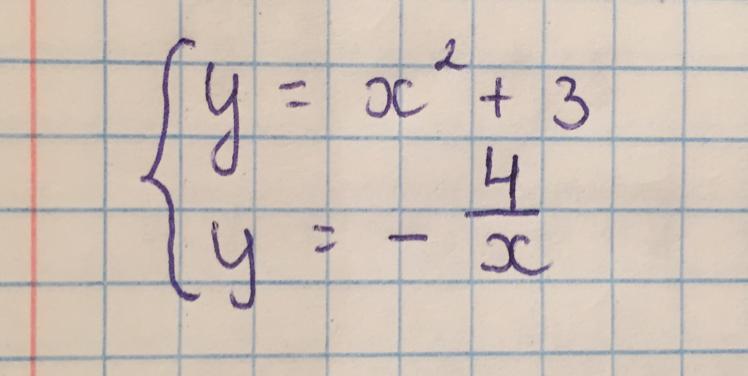 y = x² + 3
y = - 4/x